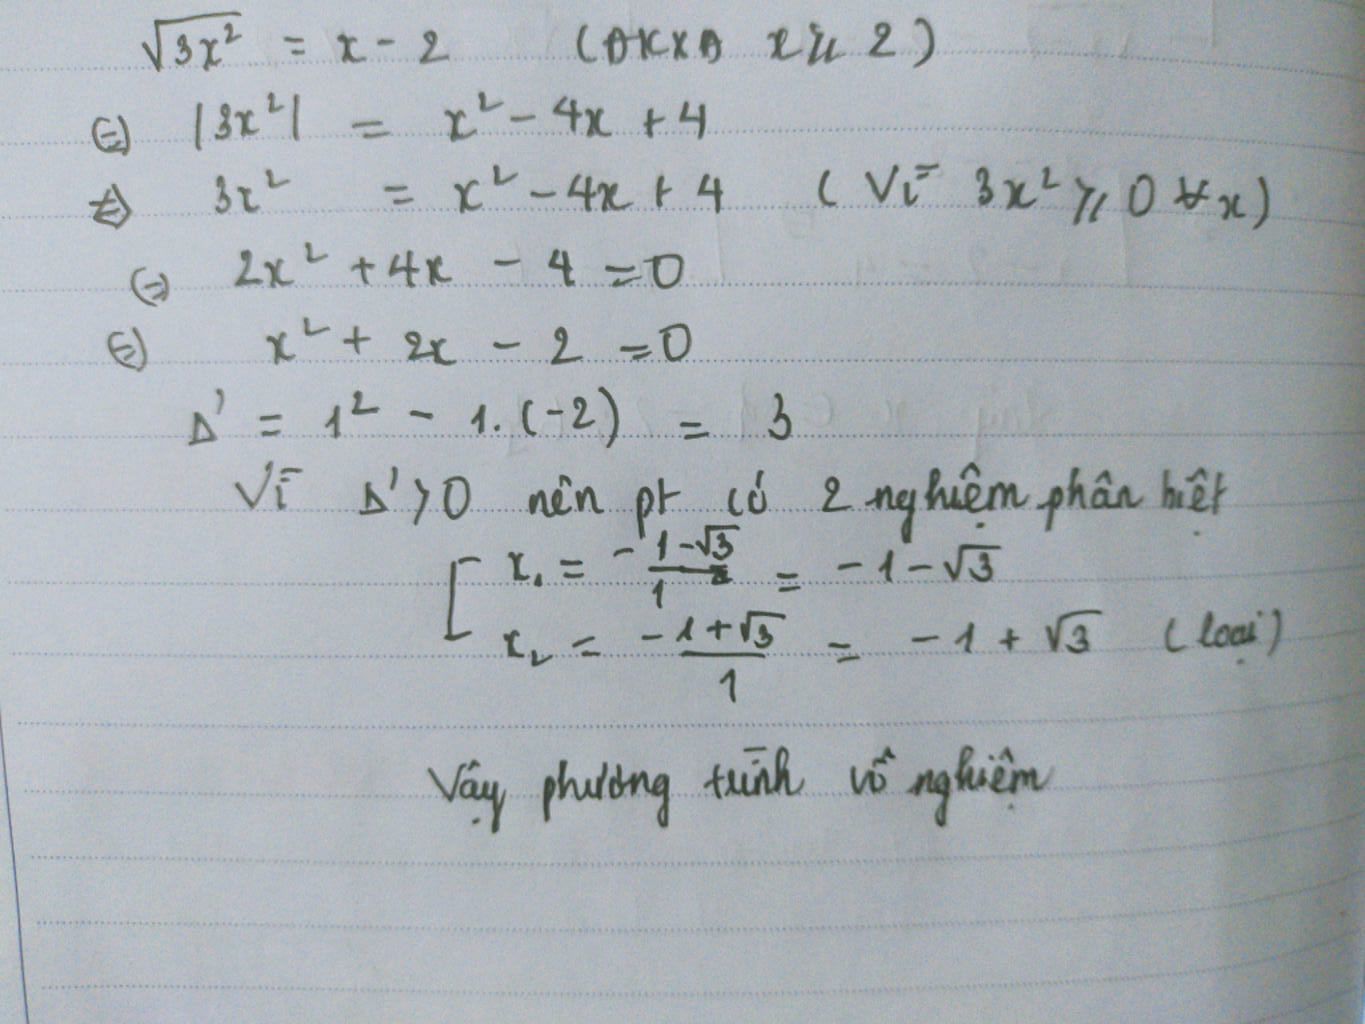 √3x² = x - 2 (ĐKXĐ x ≥ 2)
⇔ |3x²| = x² - 4x + 4
⇔ 3x² = x² - 4x + 4 (Vì 3x² ≥ 0 ∀x)
⇔ 2x² + 4x - 4 = 0
⇔ x² + 2x - 2 = 0
Δ' = 1² - 1.(-2) = 3
Vì Δ' > 0 nên pt có 2 nghiệm phân biệt
[ x₁ = -1-√3 / 1 = -1-√3
x₂ = -1+√3 / 1 = -1+√3 (loại)
Vậy phương trình vô nghiệm